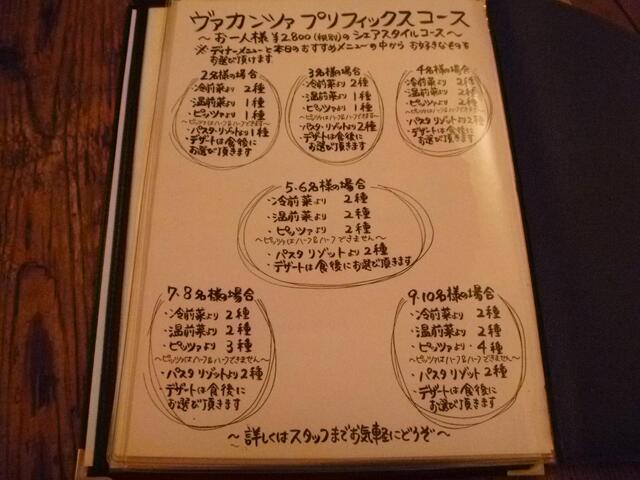 ヴァカンツァ プリフィックスコース
～お一人様 ¥2.800(税別)のシェアスタイルコース～
※ディナーメニューと本日のおすすめメニューの中から お好きなものを
お選び頂けます
2名様の場合
・冷前菜より 2種
・温前菜より 1種
・ピッツァより 1種
～ピッツァはハーフ&ハーフできます～
・パスタ・リゾットより1種
・デザートは食後に
お選び頂きます
3名様の場合
・冷前菜より 2種
・温前菜より 1種
・ピッツァより 1種
～ピッツァはハーフ&ハーフできます～
・パスタ・リゾットより2種
・デザートは食後に
お選び頂きます
4名様の場合
・冷前菜より 2種
・温前菜より 2種
・ピッツァより 2種
・パスタ リゾットより 2種
・デザートは食後に
お選び頂きます
5・6名様の場合
・冷前菜より 2種
・温前菜より 2種
・ピッツァより 2種
～ピッツァはハーフ&ハーフできません～
・パスタ リゾットより 2種
・デザートは食後にお選び頂きます
7・8名様の場合
・冷前菜より 2種
・温前菜より 2種
・ピッツァより 3種
～ピッツァはハーフ&ハーフできません～
・パスタ リゾットより 2種
・デザートは食後に
お選び頂きます
9・10名様の場合
・冷前菜より 2種
・温前菜より 2種
・ピッツァより・4種
～ピッツァはハーフ&ハーフできません～
・パスタ リゾット 2種
・デザートは食後に
お選び頂きます
～詳しくはスタッフまでお気軽にどうぞ～